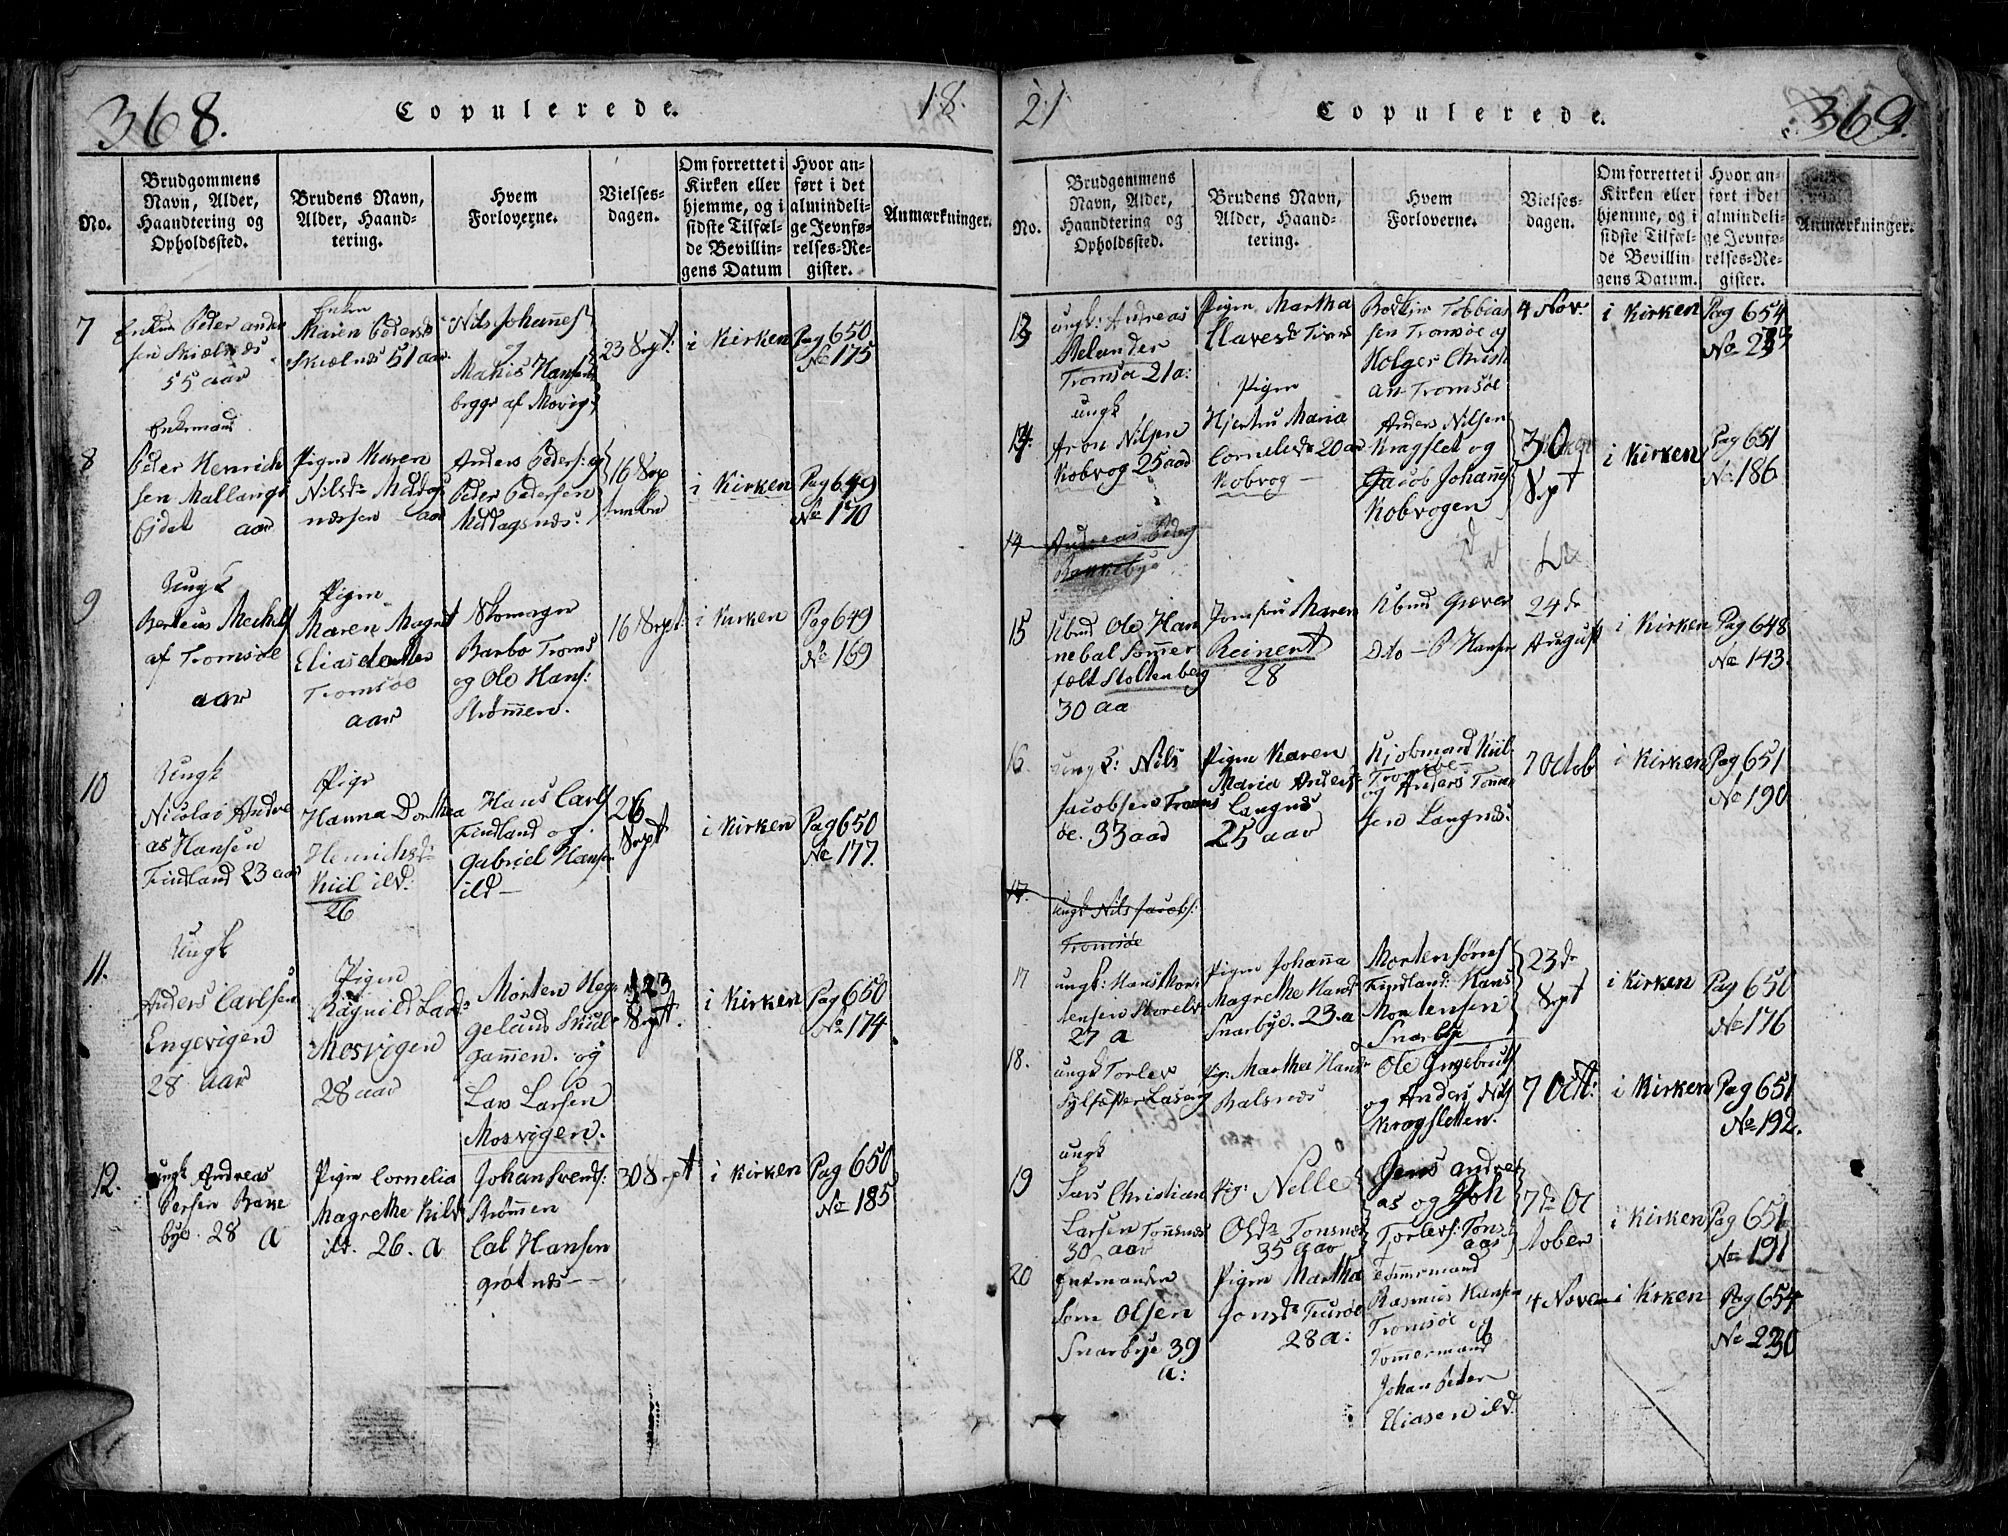 368.
Copulerede.
18
No.
Brudgommens
Navn, Alder,
Haandtering og
Opholdssted.
Brudens Navn,
Alder, Haand-
tering.
Hvem
Forloverne.
Vielses-
dagen.
Om forrettet i
Kirken eller
hjemme, og i
sidste Tilfæl-
de Bevillin-
gens Datum
Hvor an-
ført i det
almindeli-
ge Jevnfø-
relses-Re-
gister.
Anmærkninger.
7
Peder ander
sen
55 aar
Enken
Maren Peders
51 aar
Nils Johannes
Hans
23 Sept:
i Kirken
Pag 650
No 175
8
Enkemand
Peder Henrich
sen Mallangs
Eidet aar
Pigen Maren
Nilsd
aar
Anders Peders: og
Peder Pedersen
Middagsnæs:
16 Sep
i Kirken
Pag 649
No 170
9
Ungk
af Tromsøe
aar
Pigen
Maren Magret
Eliasdotter
Tromsøe
aar
Barbo Troms
og Ole Hans:
Strømmen.
16 Sept:
i Kirken
Pag 649
No 169
10
Ungk
Nicolai Andre
as Hansen
Findland 23 aar
Pige
Hanna Dorthea
Henrichsd
Kiil ild:
26
Hans Carls
Findland og
Gabriel Hansen
ild—
26
Sept
i Kirken
Pag 650
No 177.
11.
Ungk
Anders Carlsen
Engevigen
28 aar
Pigen
Ragnild Lars
Mosvigen
28 aar
Morten Heg
gelund
og
Lars Larsen
Mosvigen.
23
Sept.
i Kirken
Pag 650
No 174
12.
ungk Andreas
Persen Bakke
bye. 28 a
Pigen Cornelia
Magrethe Kild
26. a
Johan Svends:
Strømmen
Cal Hansen
grøtnæs—
30 Sept
i Kirken
Pag 650
No 185
21
Copulerede.
369.
No.
Brudgommens
Navn, Alder,
Haandtering og
Opholdssted.
Brudens Navn,
Alder, Haand-
tering.
Hvem
Forloverne.
Vielses-
dagen.
Om forrettet i
Kirken eller
hjemme, og i
sidste Tilfæl-
de Bevillin-
gens Datum.
Hvor an-
ført i det
almindeli-
ge Jevnfø-
relses-Re-
gister.
Anmærkninger.
13
ungk: Andreas
Tromsøe 21 a:
Pigen Martha
Tobbias
sen Tromsøe og
Holger Christi
an Tromsøe
4 Nov:
i Kirken
Pag 654
No
14.
ungk
Aron Nilsen
Kobvog 25 aar
Pigen
Hjertru Maria
Cornelisd 20 aar
Kobvog—
Anders Nilsen
Kragslet og
Jacob Johannes
Kobvogen
30
Sept
i Kirken
Pag 651
No 186
14
Andreas Peders
Bakkebye
15
Kbmd Ole Han
nebal Somer
felt Stoltenberg
30 aa
Jomfru Maren
Reinert
28
Kbmd Grøver
Dito — P Hansen
24 de
August
i Kirken
Pag 648
No 143.
16.
ungk: Nils
Jacobsen Troms
øe. 33 aad
Pigen Karen
Maria Anders
Langnes
25 aar
Kjøbmand Kiil
Tromsøe—
og Anders Tomas
sen Langnes.
7 Octob
i Kirken
Pag 651
No 190
17.
ungk Nils Jacobs:
Tromsøe
17
ungk: Hans Mor
tensen
27 a
Pigen Johanna
Magrethe Hansd
Snarbye. 23. a
Morten Sørens
Findland: Hans
Mortensen
Snarbye
23 de
Sept
i Kirken
Pag 650
No 176
18.
ungk Torlev
Pig: Martha Hansd
Balsnæs
Ole Ingebrigts
og Anders Nils
Kragsletten.
7 Oct:
i Kirken
Pag 651
No 192.
19
ungk
Lars Christian
Larsen Tønsnæs
30 aar
Pig: Nille
Olsd Tonsnæs
35 aar
Jens Andre
as og Joh
Torlevs: Tøns
aas
7 de Oc
tober
i Kirken
Pag 651
No 191
20
Enkemanden
Som Olsen
Snarbye 39
a:
Pigen Martha
Jonsd
28 a:
Tømmermand
Rasmus Hansen
Tromsøe og
Tømmermand
Johan Peder
Eliasen ild.
4 Novem
i Kirken
Pag 654
No 230